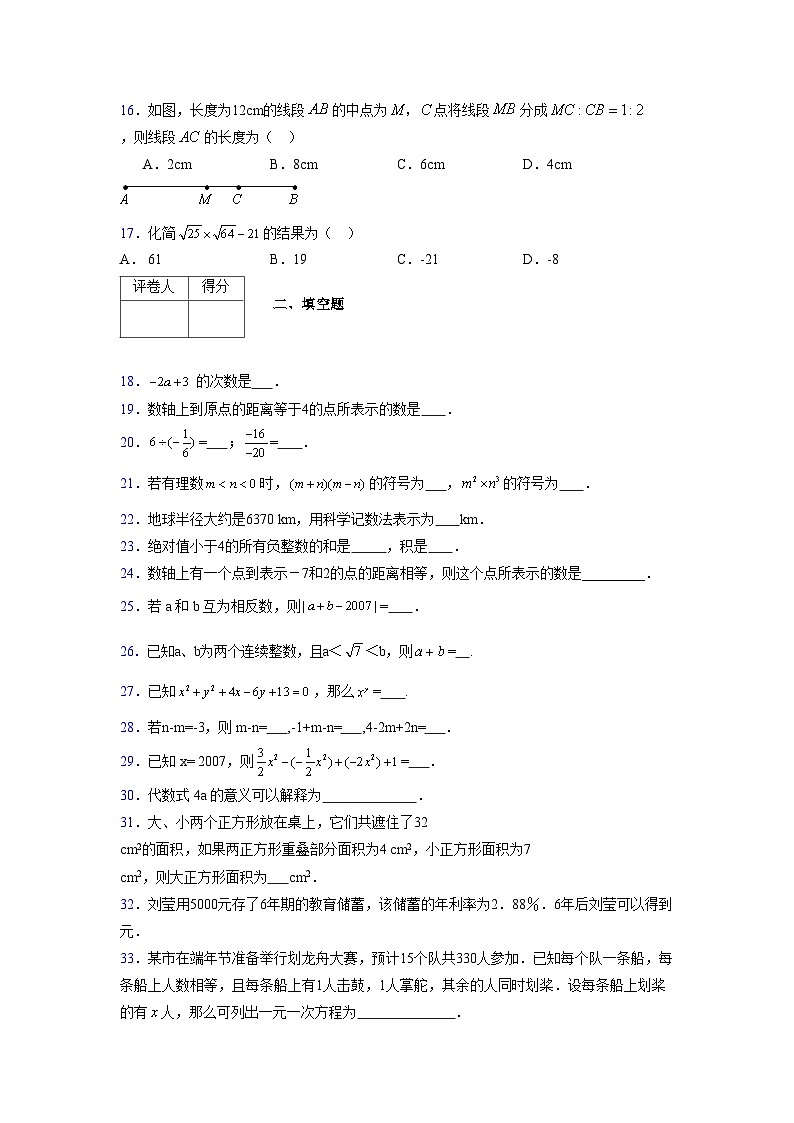 16．如图，长度为12cm的线段 AB 的中点为 M，C 点将线段 MB 分成 MC : CB = 1: 2
，则线段 AC 的长度为（　）
A．2cm B．8cm C．6cm D．4cm
A M C B
17．化简 √25 × √64 − 21 的结果为（　）
A． 61 B．19 C．-21 D．-8
评卷人 得分
二、填空题
18．−2a +3 的次数是___．
19．数轴上到原点的距离等于4的点所表示的数是____．
20．6 ÷(−1/6) =___；−16/−20 =____．
21．若有理数 m < n < 0 时，(m + n)(m − n) 的符号为___，m² × n³ 的符号为____．
22．地球半径大约是6370 km，用科学记数法表示为____km．
23．绝对值小于4的所有负整数的和是_____，积是____．
24．数轴上有一个点到表示－7和2的点的距离相等，则这个点所表示的数是_________．
25．若 a 和 b 互为相反数，则 | a + b − 2007 | =____．
26．已知a、b为两个连续整数，且a＜ √7 ＜b，则 a + b =__.
27．已知 x² + y² + 4x − 6y +13 = 0 ，那么 xʸ =____.
28．若n-m=-3，则 m-n=___,-1+m-n=___,4-2m+2n=___．
29．已知 x= 2007，则 3/2 x² −(−1/2 x²) + (−2x²) +1 =___．
30．代数式 4a 的意义可以解释为______________．
31．大、小两个正方形放在桌上，它们共遮住了32
cm²的面积，如果两正方形重叠部分面积为4 cm²，小正方形面积为7
cm²，则大正方形面积为___cm²．
32．刘莹用5000元存了6年期的教育储蓄，该储蓄的年利率为2．88％．6年后刘莹可以得到
元．
33．某市在端年节准备举行划龙舟大赛，预计15个队共330人参加．已知每个队一条船，每
条船上人数相等，且每条船上有1人击鼓，1人掌舵，其余的人同时划桨．设每条船上划桨
的有 x 人，那么可列出一元一次方程为______________．